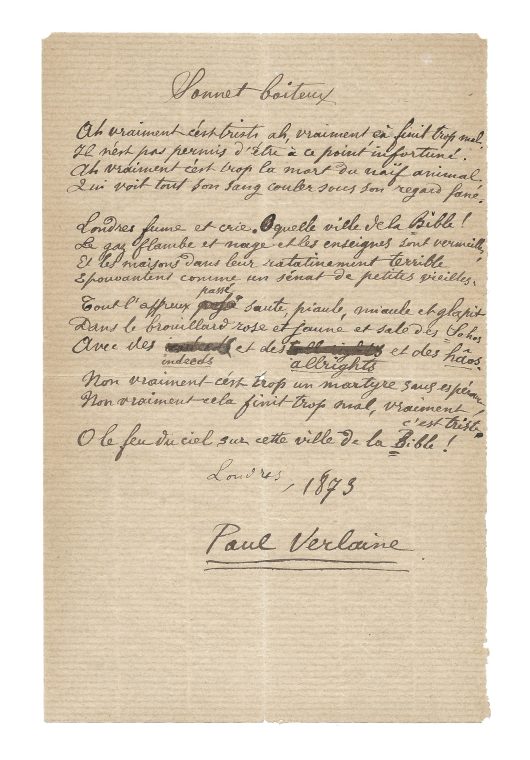 Sonnet boiteux
Ah vraiment c'est triste, ah, vraiment ça finit trop mal.
Il n'est pas permis d'être à ce point infortuné.
Ah vraiment c'est trop la mort du naïf animal
Qui voit tout son sang couler sous son regard fané.
Londres fume et crie. O quelle ville de la Bible !
Le gaz flambe et nage et les enseignes sont vermeilles,
Et les maisons dans leur ratatinement terrible
Epouvantent comme un sénat de petites vieilles.
passé
Tout l'affreux saute, piaule, miaule et glapit
Dans le brouillard rose et jaune et sale des Sohos
Avec des et des et des hâos.
indeeds allrights
Non vraiment c'est trop un martyre sans espéran
Non vraiment cela finit trop mal, vraiment,
c'est triste
O le feu du ciel sur cette ville de la Bible !
Londres, 1873
Paul Verlaine